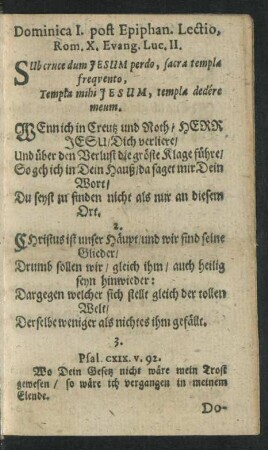 Dominica I. post Epiphan. Lectio,
Rom. X. Evang. Luc. II.
SUb cruce dum JESUM perdo, sacra templa
freqvento,
Templa mihi JESUM, templa dedêre
meum.
WEnn ich in Creutz und Noth / HERR
JESU / Dich verliere /
Und über den Verlust die gröste Klage führe /
So geh ich in Dein Hauß / da saget mir Dein
Wort /
Du seyst zu finden nicht als nur an diesem
Ort.
2.
CHristus ist unser Häupt / und wir sind seine
Glieder /
Drumb sollen wir / gleich ihm / auch heilig
seyn hinwieder:
Dargegen welcher sich stellt gleich der tollen
Welt /
Derselbe weniger als nichtes ihm gefällt.
3.
Psal. CXIX. v. 92.
Wo Dein Gesetz nicht wäre mein Trost
gewesen / so wäre ich vergangen in meinem
Elende.
Do-